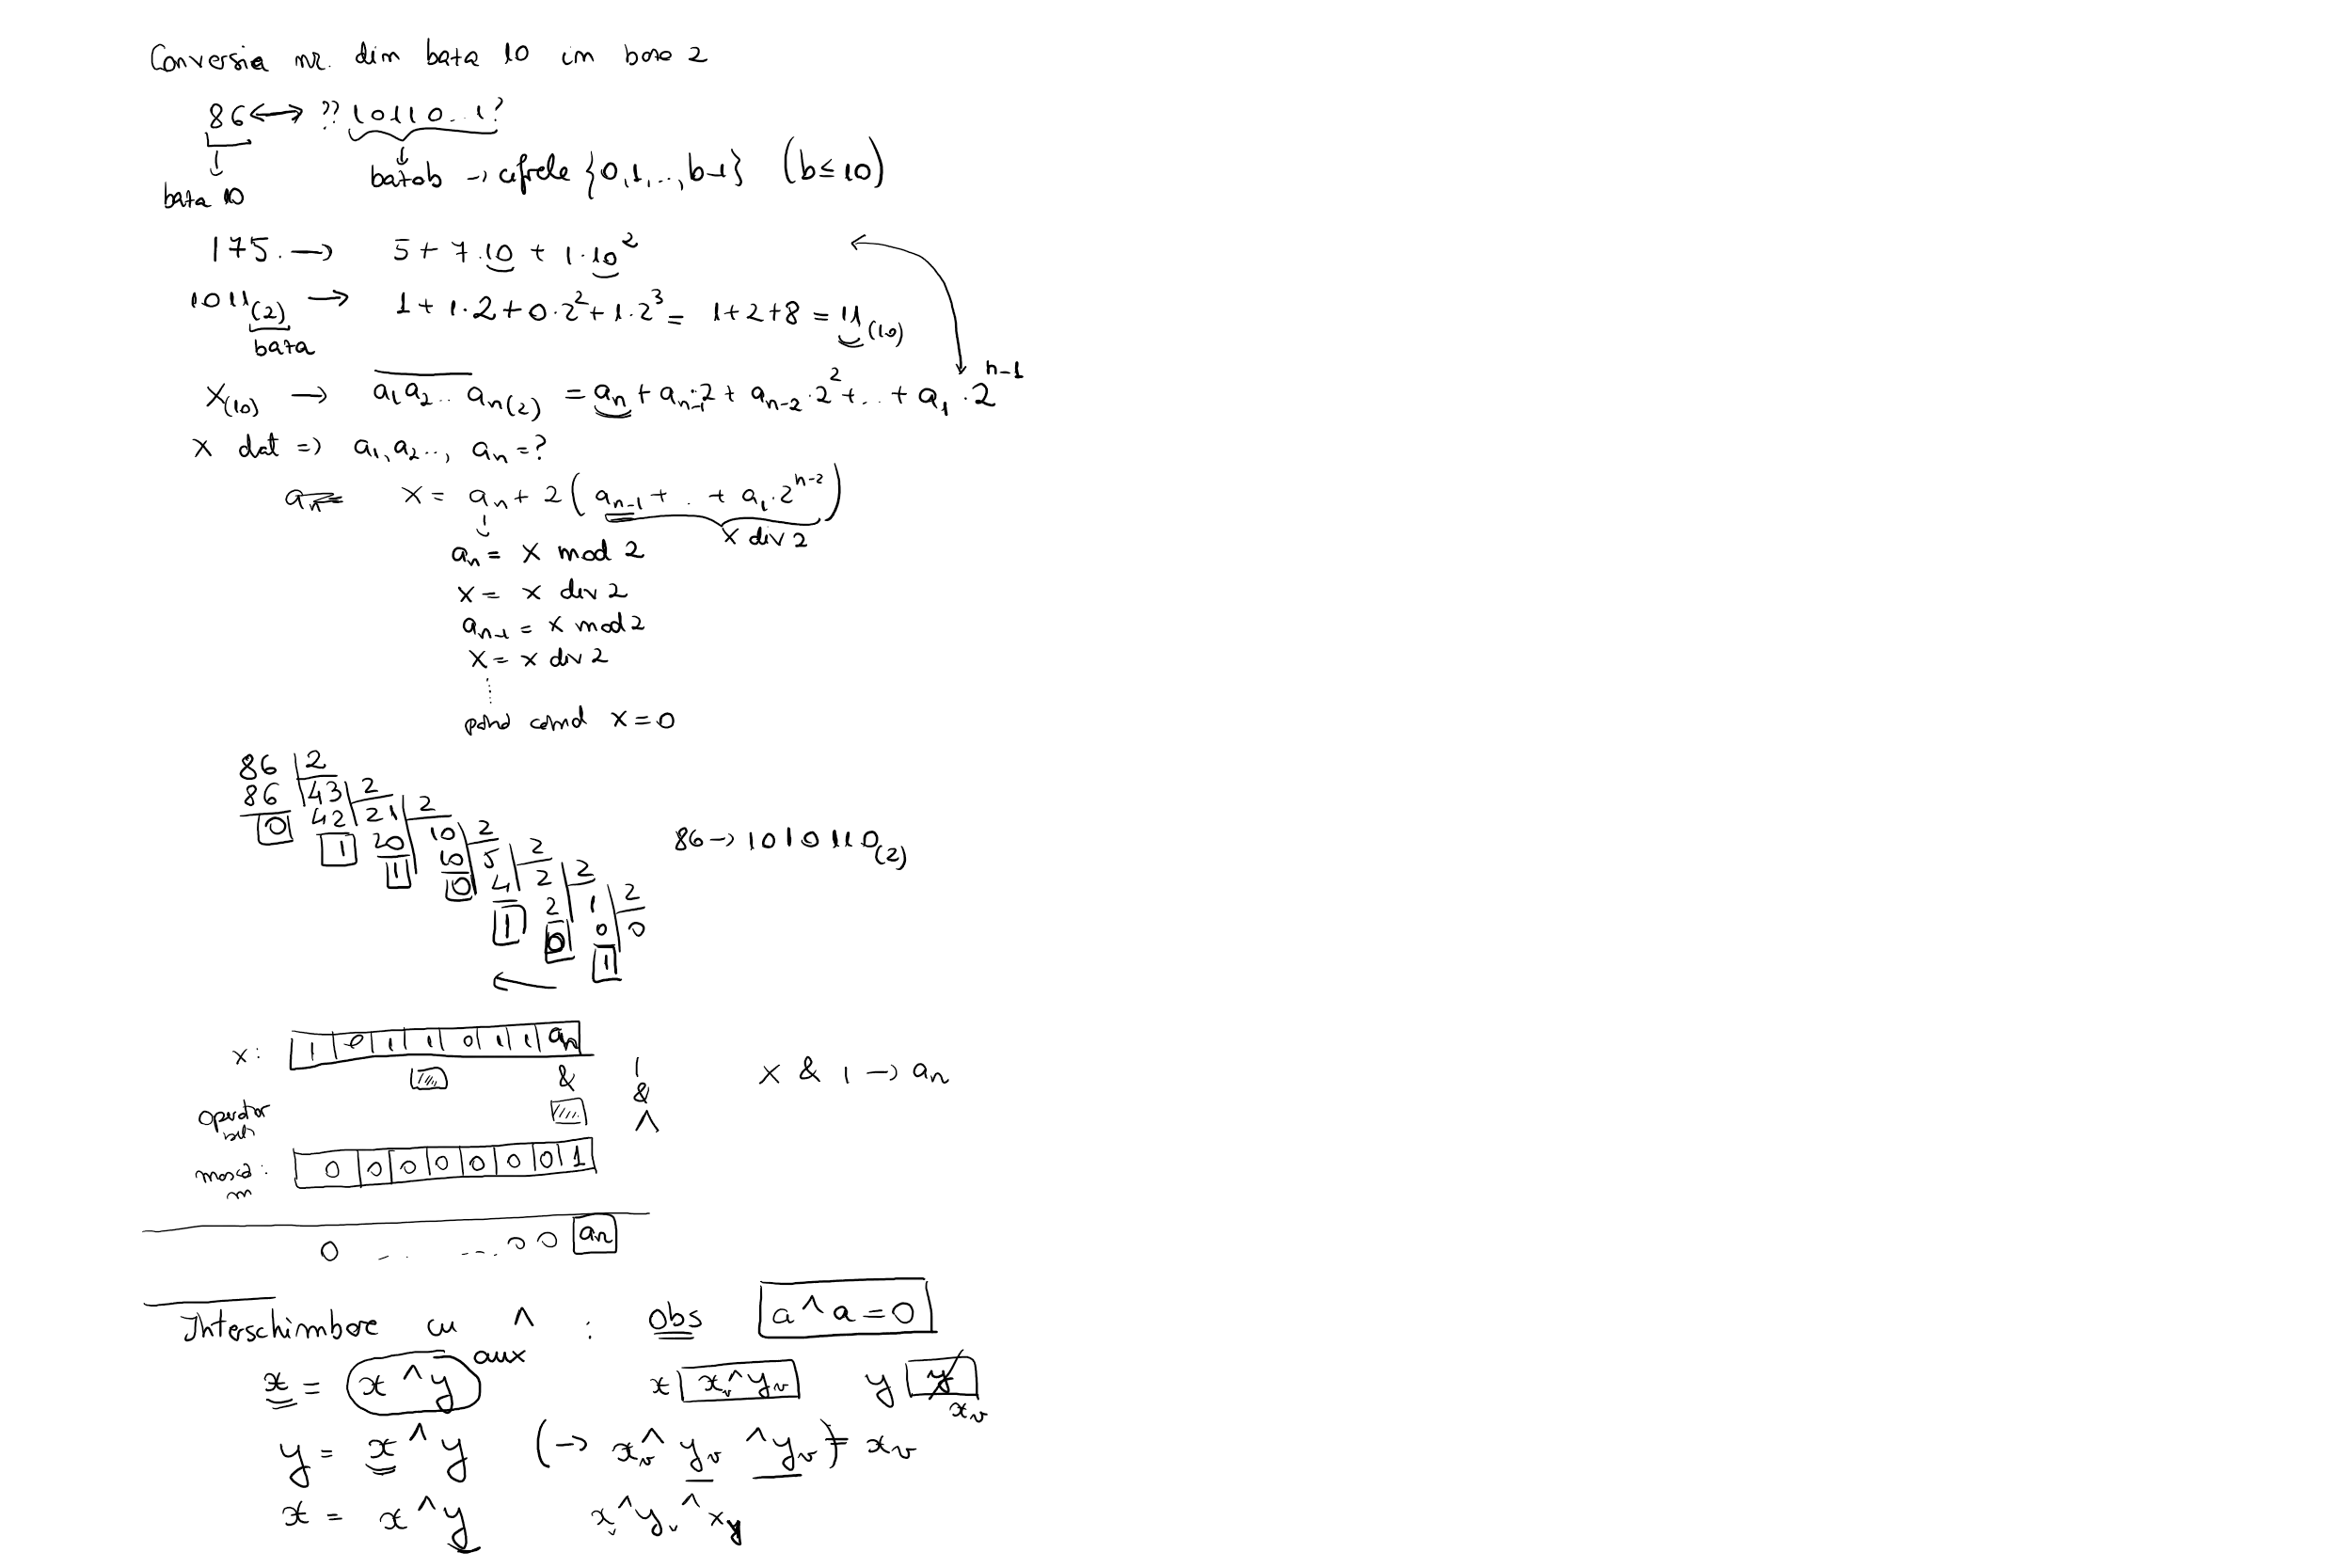 Conversia nr. din baza 10 in baza 2
86 ↔ ?? 10110...1?
baza 10
baza b → cifrele {0,1,...,b-1} (b≤10)
175. → 5 + 7·10 + 1·10²
1011(2) → 1 + 1·2 + 0·2² + 1·2³ = 1+2+8 = 11(10)
baza
X(10) → a₁a₂..aₙ(2) = aₙ + aₙ₋₁·2 + aₙ₋₂·2² + .. + a₁·2ⁿ⁻¹
X dat => a₁,a₂.., aₙ=?
aₙ= X = aₙ + 2(aₙ₋₁ + . + a₁·2ⁿ⁻²)
X div 2
aₙ = X mod 2
X = X div 2
aₙ₋₁ = X mod 2
X = X div 2
pana cand X=0
86 | 2
86 | 43 | 2
0 42 | 21 | 2
1 20 | 10 | 2
1 10 | 5 | 2
0 4 | 2 | 2
1 2 | 1 | 2
0 0 | 0
1
86 → 1010110(2)
x: 1 0 1 1 0 1 1 aₙ
& |
&
^
X & 1 → aₙ
operator
masca: 0 0 0 0 0 0 0 1
m
0 .. ... 0 0 aₙ
Interschimbare cu ^ : Obs a^a=0
x = x^y aux x xᵥ^yᵥ y y
xᵥ
y = x^y (→ xᵥ^yᵥ^yᵥ) = xᵥ
x = x^y xᵥ^yᵥ^xᵥ